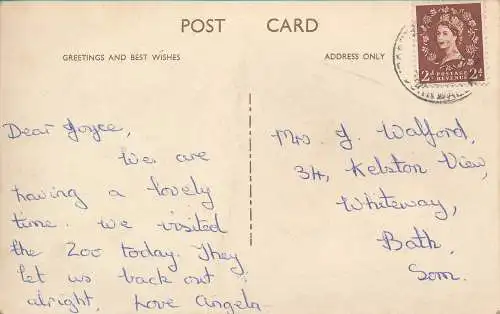 POST CARD
GREETINGS AND BEST WISHES
ADDRESS ONLY
POSTAGE REVENUE
2d 2d
Dear Joyce,
We are
having a lovely
time. We visited
the Zoo today. They
let us back out
alright, Love Angela
Mrs J. Walford,
34, Kelston View,
Whiteway,
Bath,
Som.